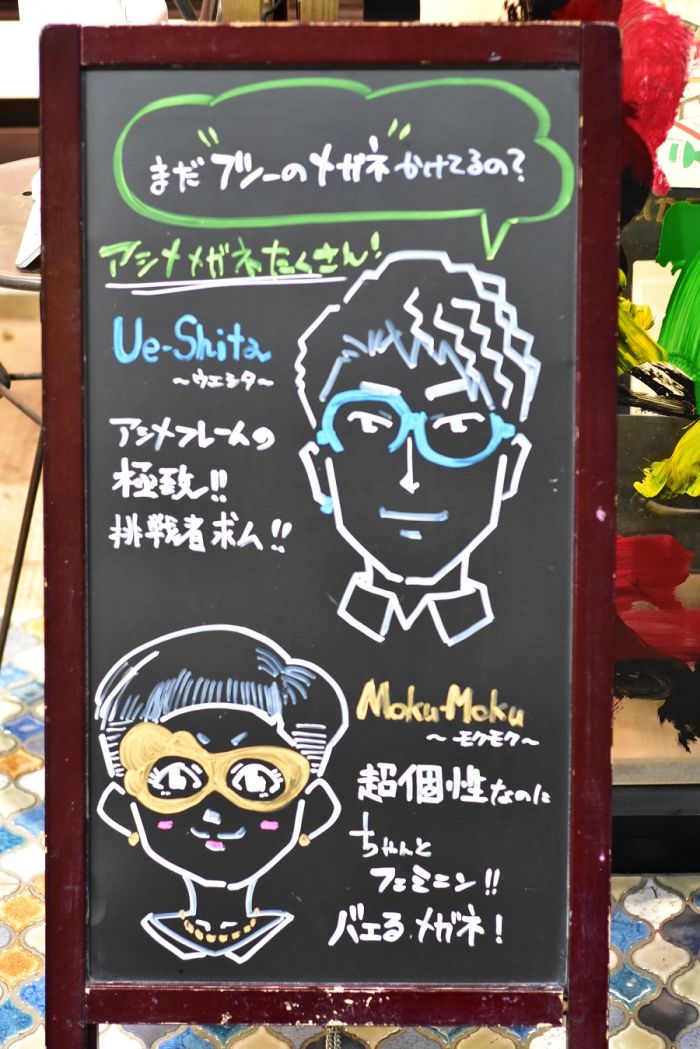 まだ"フツーのメガネ"かけてるの?
アシメメガネたくさん!
Ue-Shita
〜ウエシタ〜
アシメフレームの
極致!!
挑戦者求ム!!
Moku-Moku
〜モクモク〜
超個性なのに
ちゃんと
フェミニン!!
バエるメガネ!